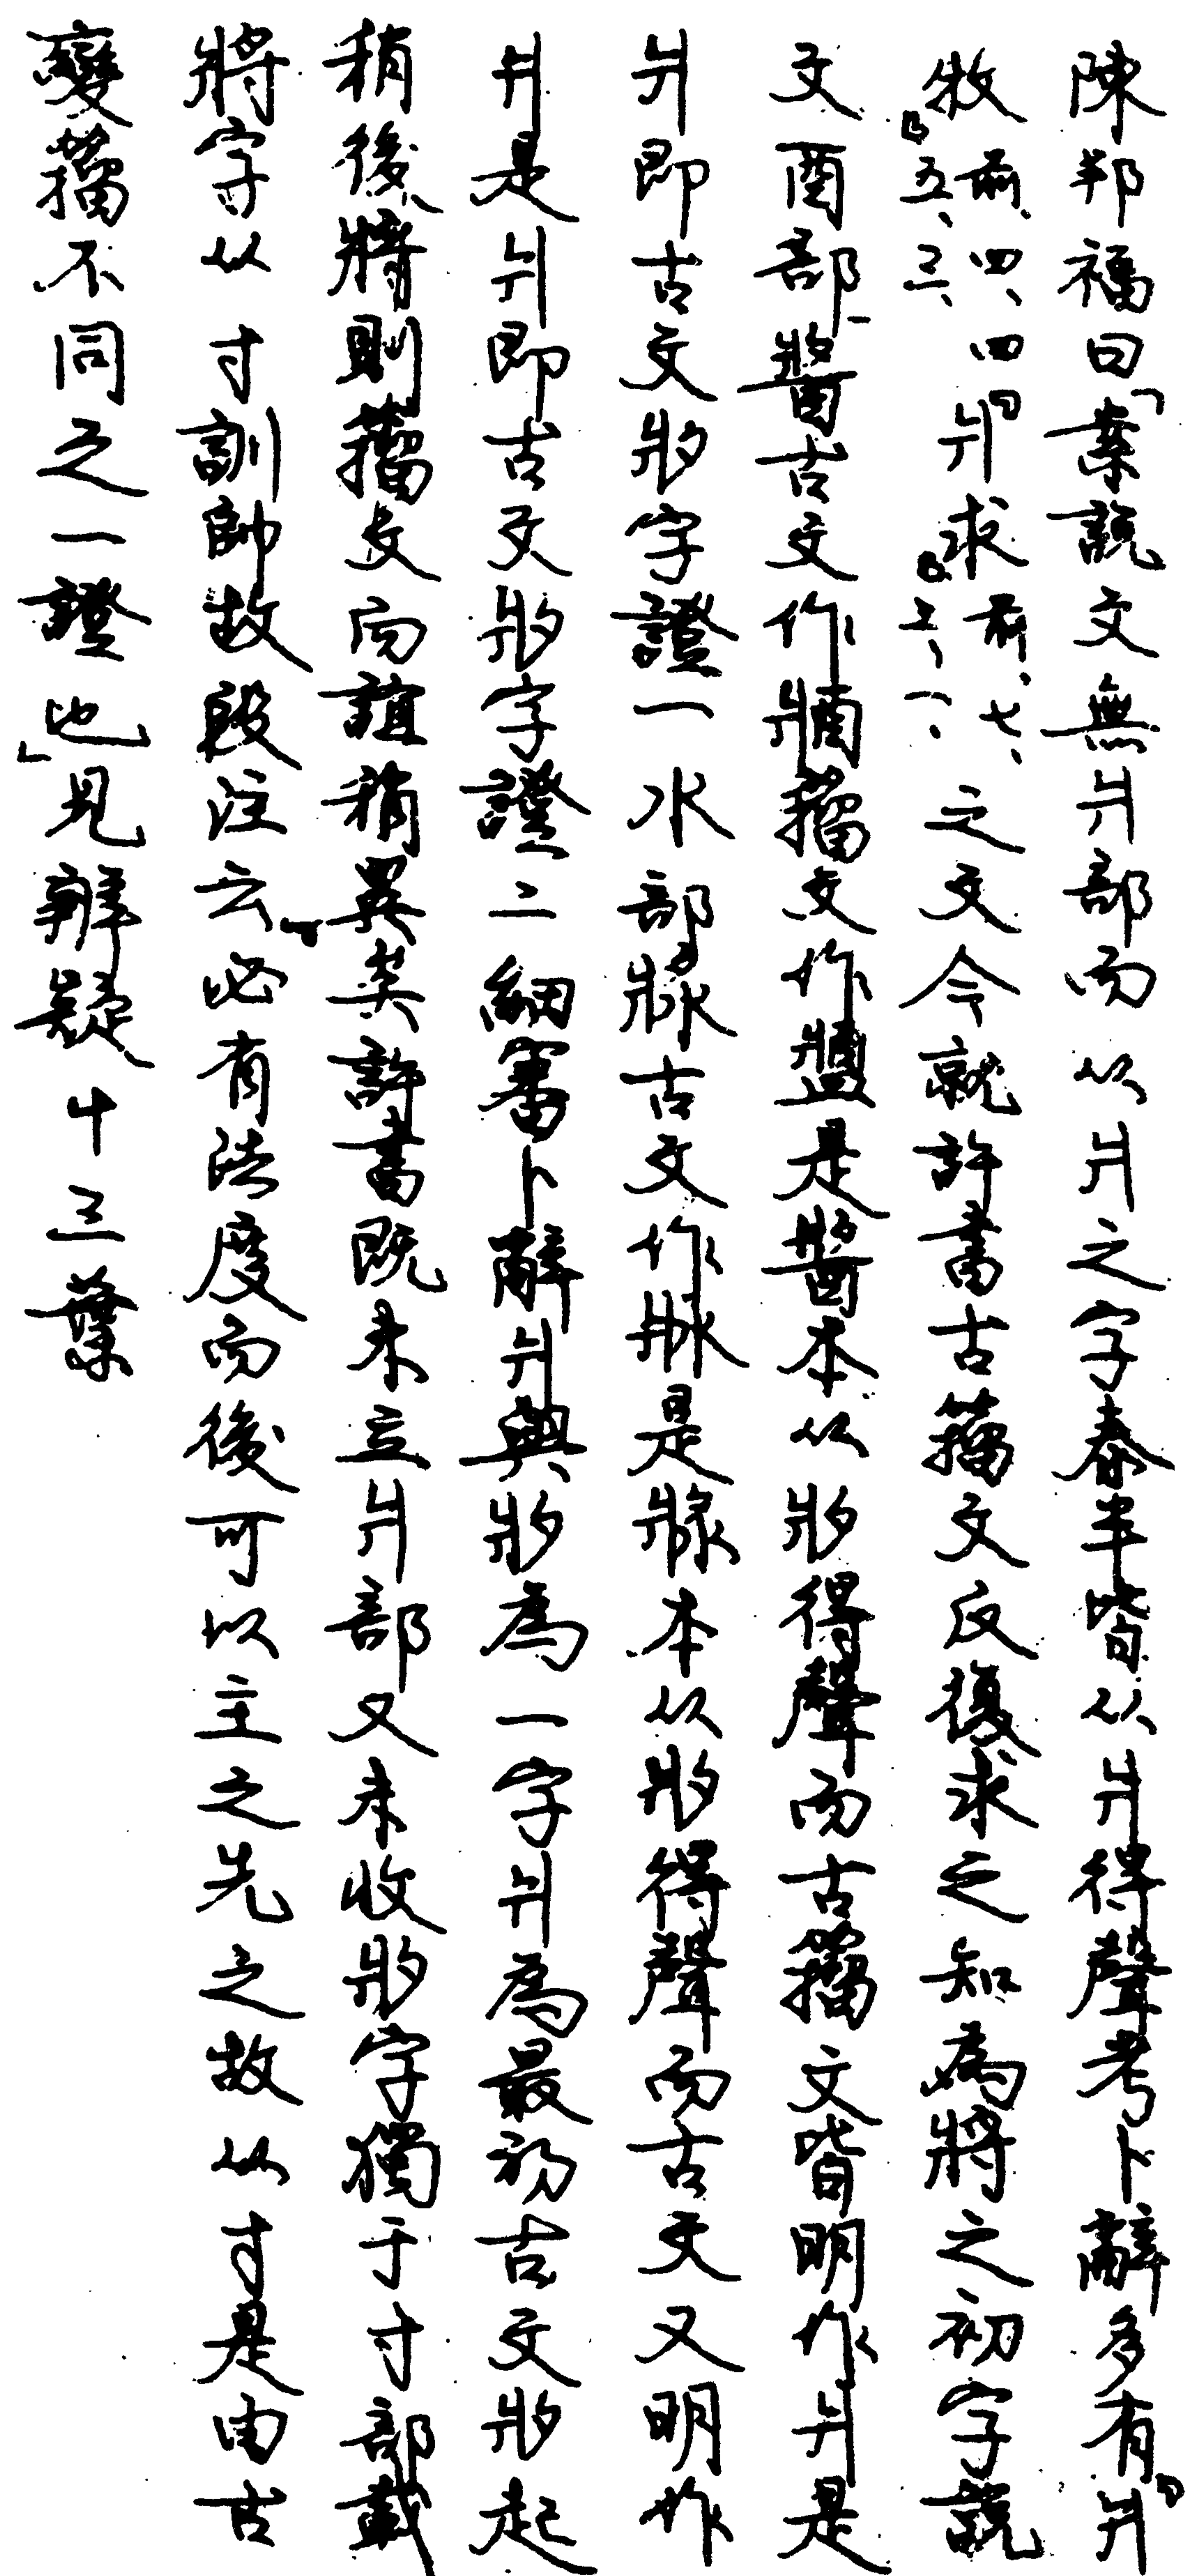 陳邦福曰「案說文無爿部而从爿之字泰半皆从爿得聲考卜辭多有『爿
牧』前、四、四四、五、三、『爿求』前、七、三、一、之文今就許書古籀文反復求之知為將之初字說
文酉部、醬古文作𤖙籀文作𤖞是醬本从𤕭得聲而古籀文皆明作爿是
爿即古文𤕭字證一水部、㵁古文作𣶏是㵁本从𤕭得聲而古文又明作
爿是爿即古文𤕭字證二細審卜辭爿與𤕭為一字爿為最初古文𤕭起
稍後、將則籀文而誼稍異矣許書既未立爿部又未收𤕭字獨于寸部載
將字从寸訓帥故段注云『必有法度而後可以主之先之故从寸』是由古
變籀不同之一證也」見辨疑十三葉